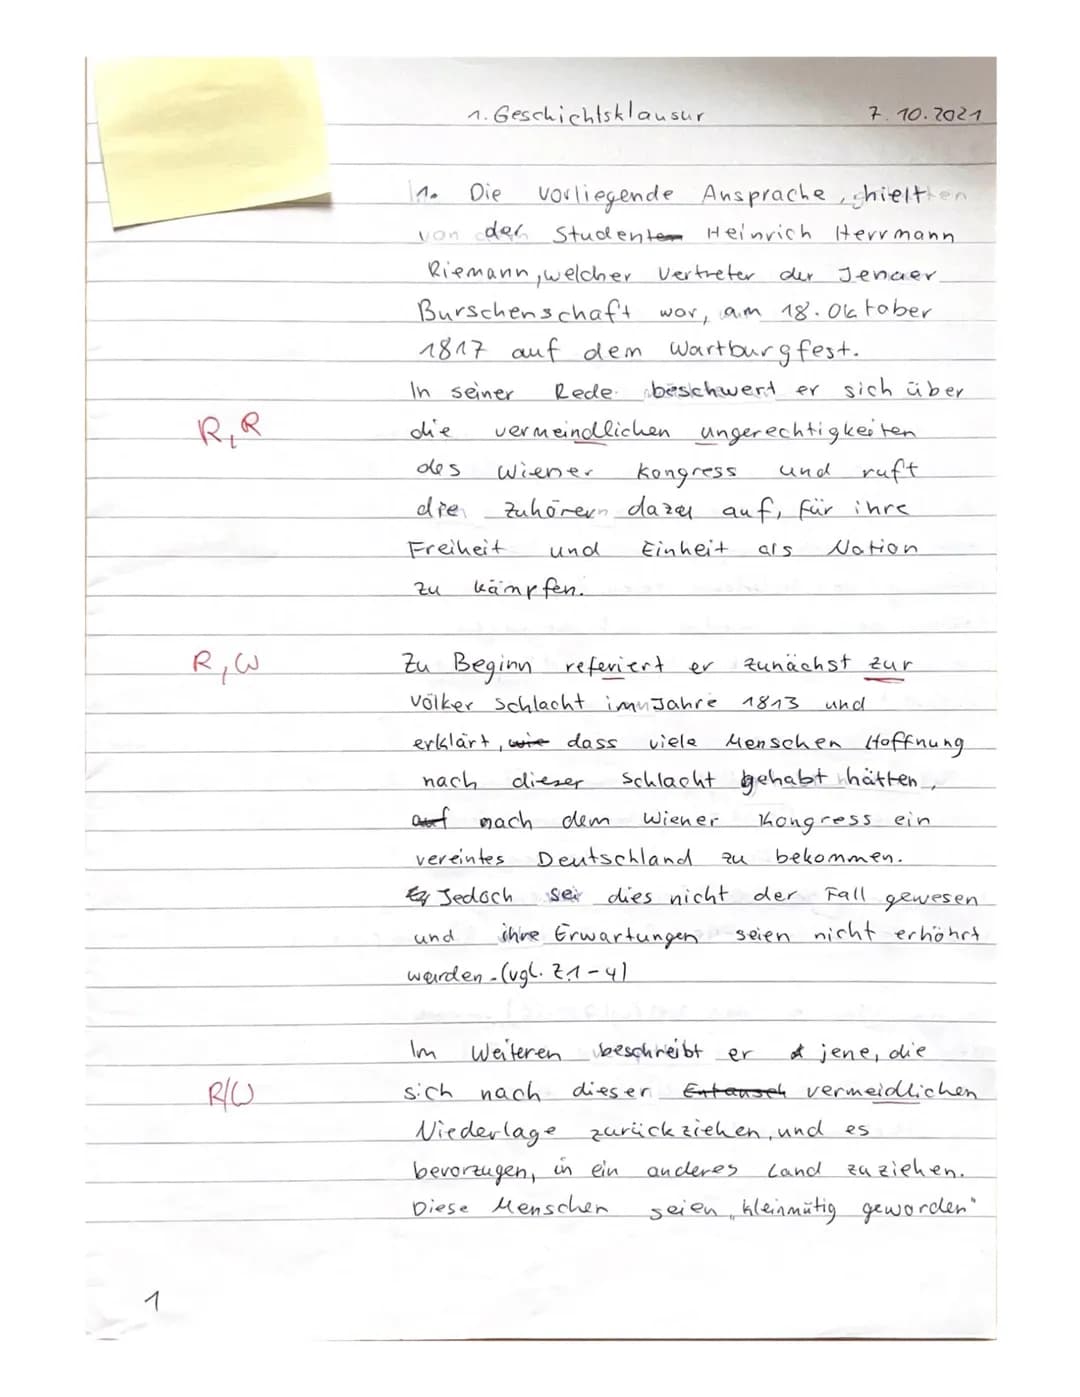 1. Geschichtsklausur 7.10.2021
1. Die vorliegende Ansprache, hielt
der Student Heinrich Herrmann
Riemann, welcher Vertreter der Jenaer
Burschenschaft war, am 18. Oktober
1817 auf dem Wartburgfest.
In seiner Rede beschwert er sich über
R, R die vermeindlichen ungerechtigkeiten
des Wiener Kongress und ruft
die Zuhörer dazu auf, für ihre
Freiheit und Einheit als Nation
zu kämpfen.
R, W Zu Beginn referiert er zunächst zur
Völker Schlacht im Jahre 1813 und
erklärt, wie dass viele Menschen Hoffnung
nach dieser Schlacht gehabt hätten,
auf nach dem Wiener Kongress ein
vereintes Deutschland zu bekommen.
Jedoch sei dies nicht der Fall gewesen
und ihre Erwartungen seien nicht erhöhrt
worden. (vgl. Z.1-4)
Im Weiteren beschreibt er jene, die
R/W sich nach dieser Entäusch vermeidlichen
Niederlage zurückziehen, und es
bevorzugen, in ein anderes Land zu ziehen.
Diese Menschen seien „kleinmütig geworden"
1